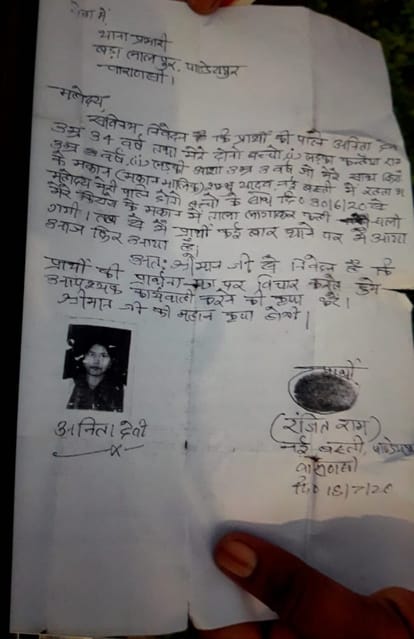 सेवा में
थाना प्रभारी
बड़ा लालपुर, पाण्डेयपुर
वाराणसी।
महोदय,
सविनय निवेदन है कि प्रार्थी की पत्नि अनिता देवी
उम्र 34 वर्ष तथा मेरे दोनो बच्चो लड़का राम
उम्र वर्ष लड़की आशा उम्र 3 वर्ष जो मेरे साथ
के मकान (मकान मालिक) शम्भू यादव नई बस्ती में रहता था
महोदय मेरी पत्नि दोनो बच्चो के साथ दि० 30/6/20 को
मेरे किराये के मकान में ताला लगाकर कही चली
गयी। तब से मैं प्रार्थी कई बार थाने पर भी आया
आज फिर आया है।
अतः श्रीमान जी से निवेदन है कि
प्रार्थी की प्रार्थना पत्र पर विचार करते हुये
आवश्यक कार्यवाही करने की कृपा करें।
श्रीमान जी की महान कृपा होगी।
प्रार्थी
अनिता देवी
(रंजित राम)
नई बस्ती, पाण्डेयपुर
वाराणसी
दि० 18/7/20